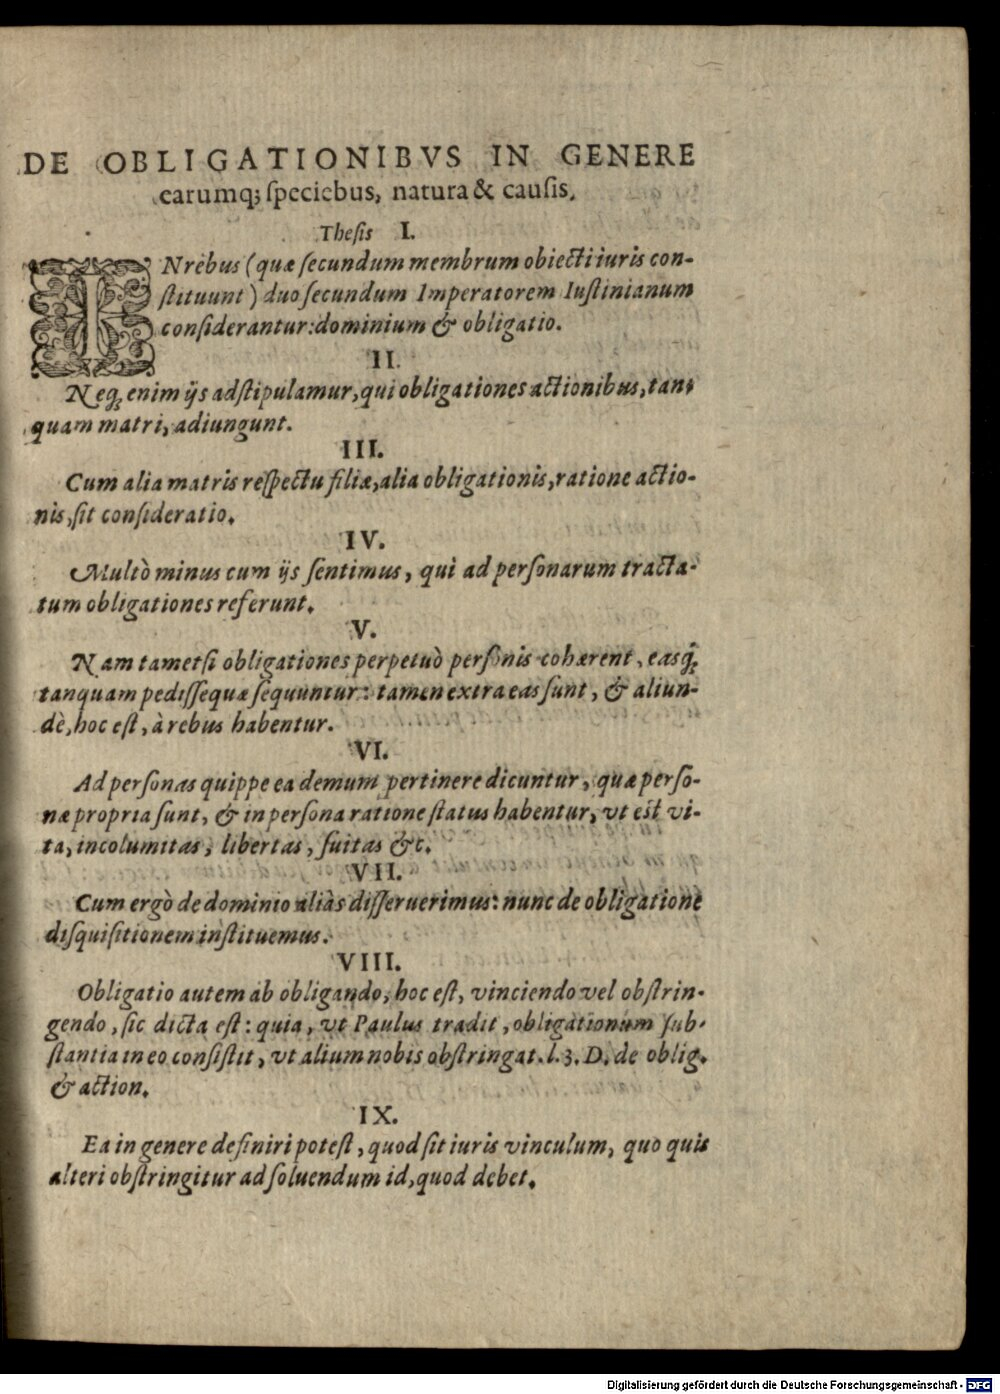 DE OBLIGATIONIBVS IN GENERE
earumq; speciebus, natura & causis.
Thesis I.
IN rebus (quæ secundum membrum obiecti iuris con-
stituunt) duo secundum Imperatorem Iustinianum
considerantur: dominium & obligatio.
II.
Neq; enim ijs adstipulamur, qui obligationes actionibus, tan-
quam matri, adiungunt.
III.
Cum alia matris respectu filiæ, alia obligationis, ratione actio-
nis, sit consideratio.
IV.
Multò minus cum ijs sentimus, qui ad personarum tracta-
tum obligationes referunt.
V.
Nam tametsi obligationes perpetuò personis cohærent, easq́;
tanquam pedissequæ sequuntur: tamen extra eas sunt, & aliun-
dè, hoc est, à rebus habentur.
VI.
Ad personas quippe ea demum pertinere dicuntur, quæ perso-
næ propria sunt, & in persona ratione status habentur, vt est vi-
ta, incolumitas, libertas, suitas &c.
VII.
Cum ergò de dominio aliàs disseruerimus: nunc de obligatione
disquisitionem instituemus.
VIII.
Obligatio autem ab obligando, hoc est, vinciendo vel obstrin-
gendo, sic dicta est: quia, vt Paulus tradit, obligationum sub-
stantia in eo consistit, vt alium nobis obstringat. l. 3. D. de oblig.
& action.
IX.
Ea in genere definiri potest, quod sit iuris vinculum, quo quis
alteri obstringitur ad soluendum id, quod debet.
Digitalisierung gefördert durch die Deutsche Forschungsgemeinschaft - DFG